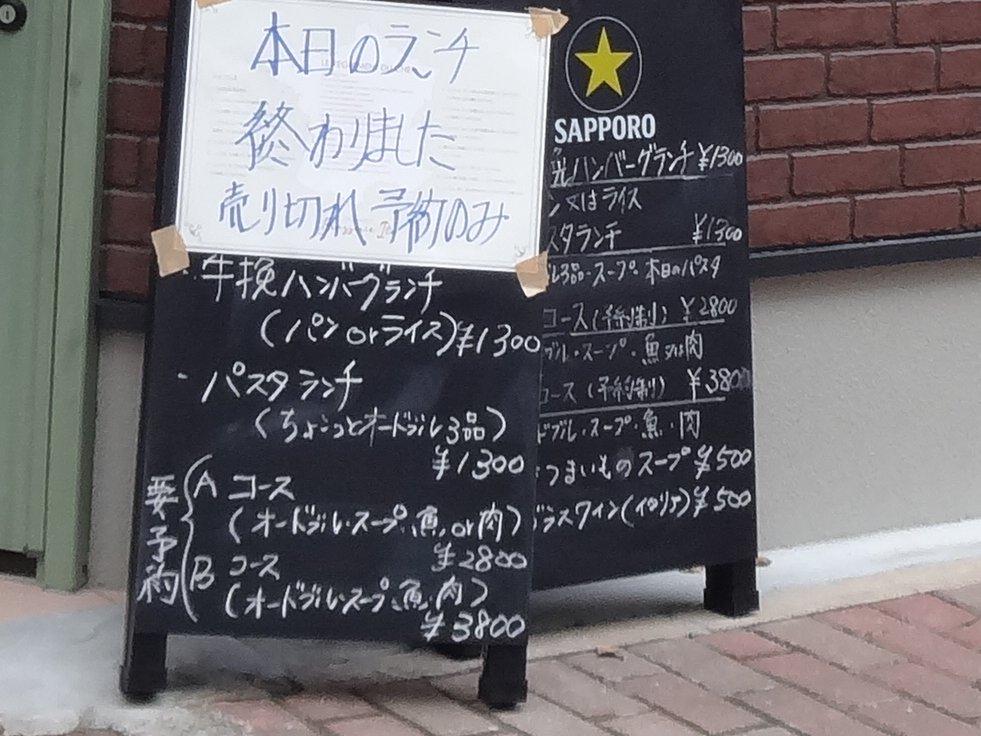 本日のランチ
終わりました
売り切れ 予約のみ
・牛挽ハンバーグランチ
(パンorライス)¥1300
・パスタランチ
(ちょこっとオードブル3品)
¥1300
要予約
A コース
(オードブル・スープ、魚、or肉)
¥2800
B コース
(オードブル・スープ、魚・肉)
¥3800
SAPPORO
ハンバーグランチ ¥1300
ン又はライス
スタランチ ¥1300
ル3品・スープ・本日のパスタ
コース(予約制) ¥2800
ブル・スープ・魚又は肉
コース(予約制) ¥3800
ドブル・スープ・魚・肉
つまいものスープ ¥500
グラスワイン(イタリア) ¥500